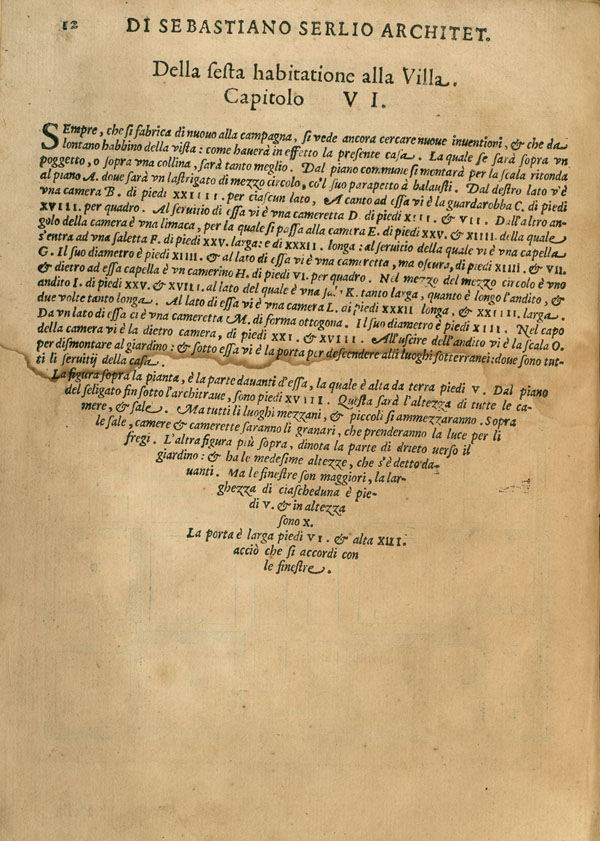 12 DI SEBASTIANO SERLIO ARCHITET.
Della sesta habitatione alla Villa.
Capitolo VI.
SEmpre, che si fabrica di nuouo alla campagna, si vede ancora cercare nuoue inuentioni, & che da
lontano habbino della vista: come hauerà in effetto la presente casa. La quale se sarà sopra vn
poggetto, o sopra vna collina, sarà tanto meglio. Dal piano commune si montarà per la scala ritonda
al piano A. doue sarà vn lastrigato di mezzo circolo, co'l suo parapetto à balausti. Dal destro lato v'è
vna camera B. di piedi XXIIII. per ciascun lato, A canto ad essa vi è la guardarobba C. di piedi
XVIIII. per quadro. Al seruitio di essa vi è vna cameretta D. di piedi XIII. & VII. Dall'altro an-
golo della camera è vna limaca, per la quale si passa alla camera E. di piedi XXV. & XIIII. della quale
s'entra ad vna saletta F. di piedi XXV. larga: e di XXXII. longa: al seruitio della quale vi è vna capella
G. Il suo diametro è piedi XIIII. & al lato di essa vi è vna cameretta, ma oscura, di piedi XIIII. & VII.
& dietro ad essa capella è vn camerino H. di piedi VI. per quadro. Nel mezzo del mezzo circolo è vno
andito I. di piedi XXV. & XVII. al lato del quale è vna K. tanto larga, quanto è longo l'andito, &
due volte tanto longa. Al lato di essa vi è vna camera L. di piedi XXXII longa, & XXIIII. larga.
Da vn lato di essa ci è vna cameretta M. di forma ottogona. Il suo diametro è piedi XIII. Nel capo
della camera vi è la dietro camera, di piedi XXI. & XVIII. All'uscire dell'andito vi è la scala O.
per dismontare al giardino: & sotto essa vi è la porta per descendere alli luoghi sotterranei: doue sono tut-
ti li seruitij della casa.
La figura sopra la pianta, è la parte dauanti d'essa, la quale è alta da terra piedi V. Dal piano
del seligato fin sotto l'architraue, sono piedi XVIII. Questa sarà l'altezza di tutte le ca-
mere, & sale. Ma tutti li luoghi mezzani, & piccoli si ammezzaranno. Sopra
le sale, camere & camerette saranno li granari, che prenderanno la luce per li
fregi. L'altra figura più sopra, dinota la parte di drieto uerso il
giardino: & ha le medesime altezze, che s'è detto da-
uanti. Ma le finestre son maggiori, la lar-
ghezza di ciascheduna è pie-
di V. & in altezza
sono X.
La porta è larga piedi VI. & alta XIII.
acciò che si accordi con
le finestre.